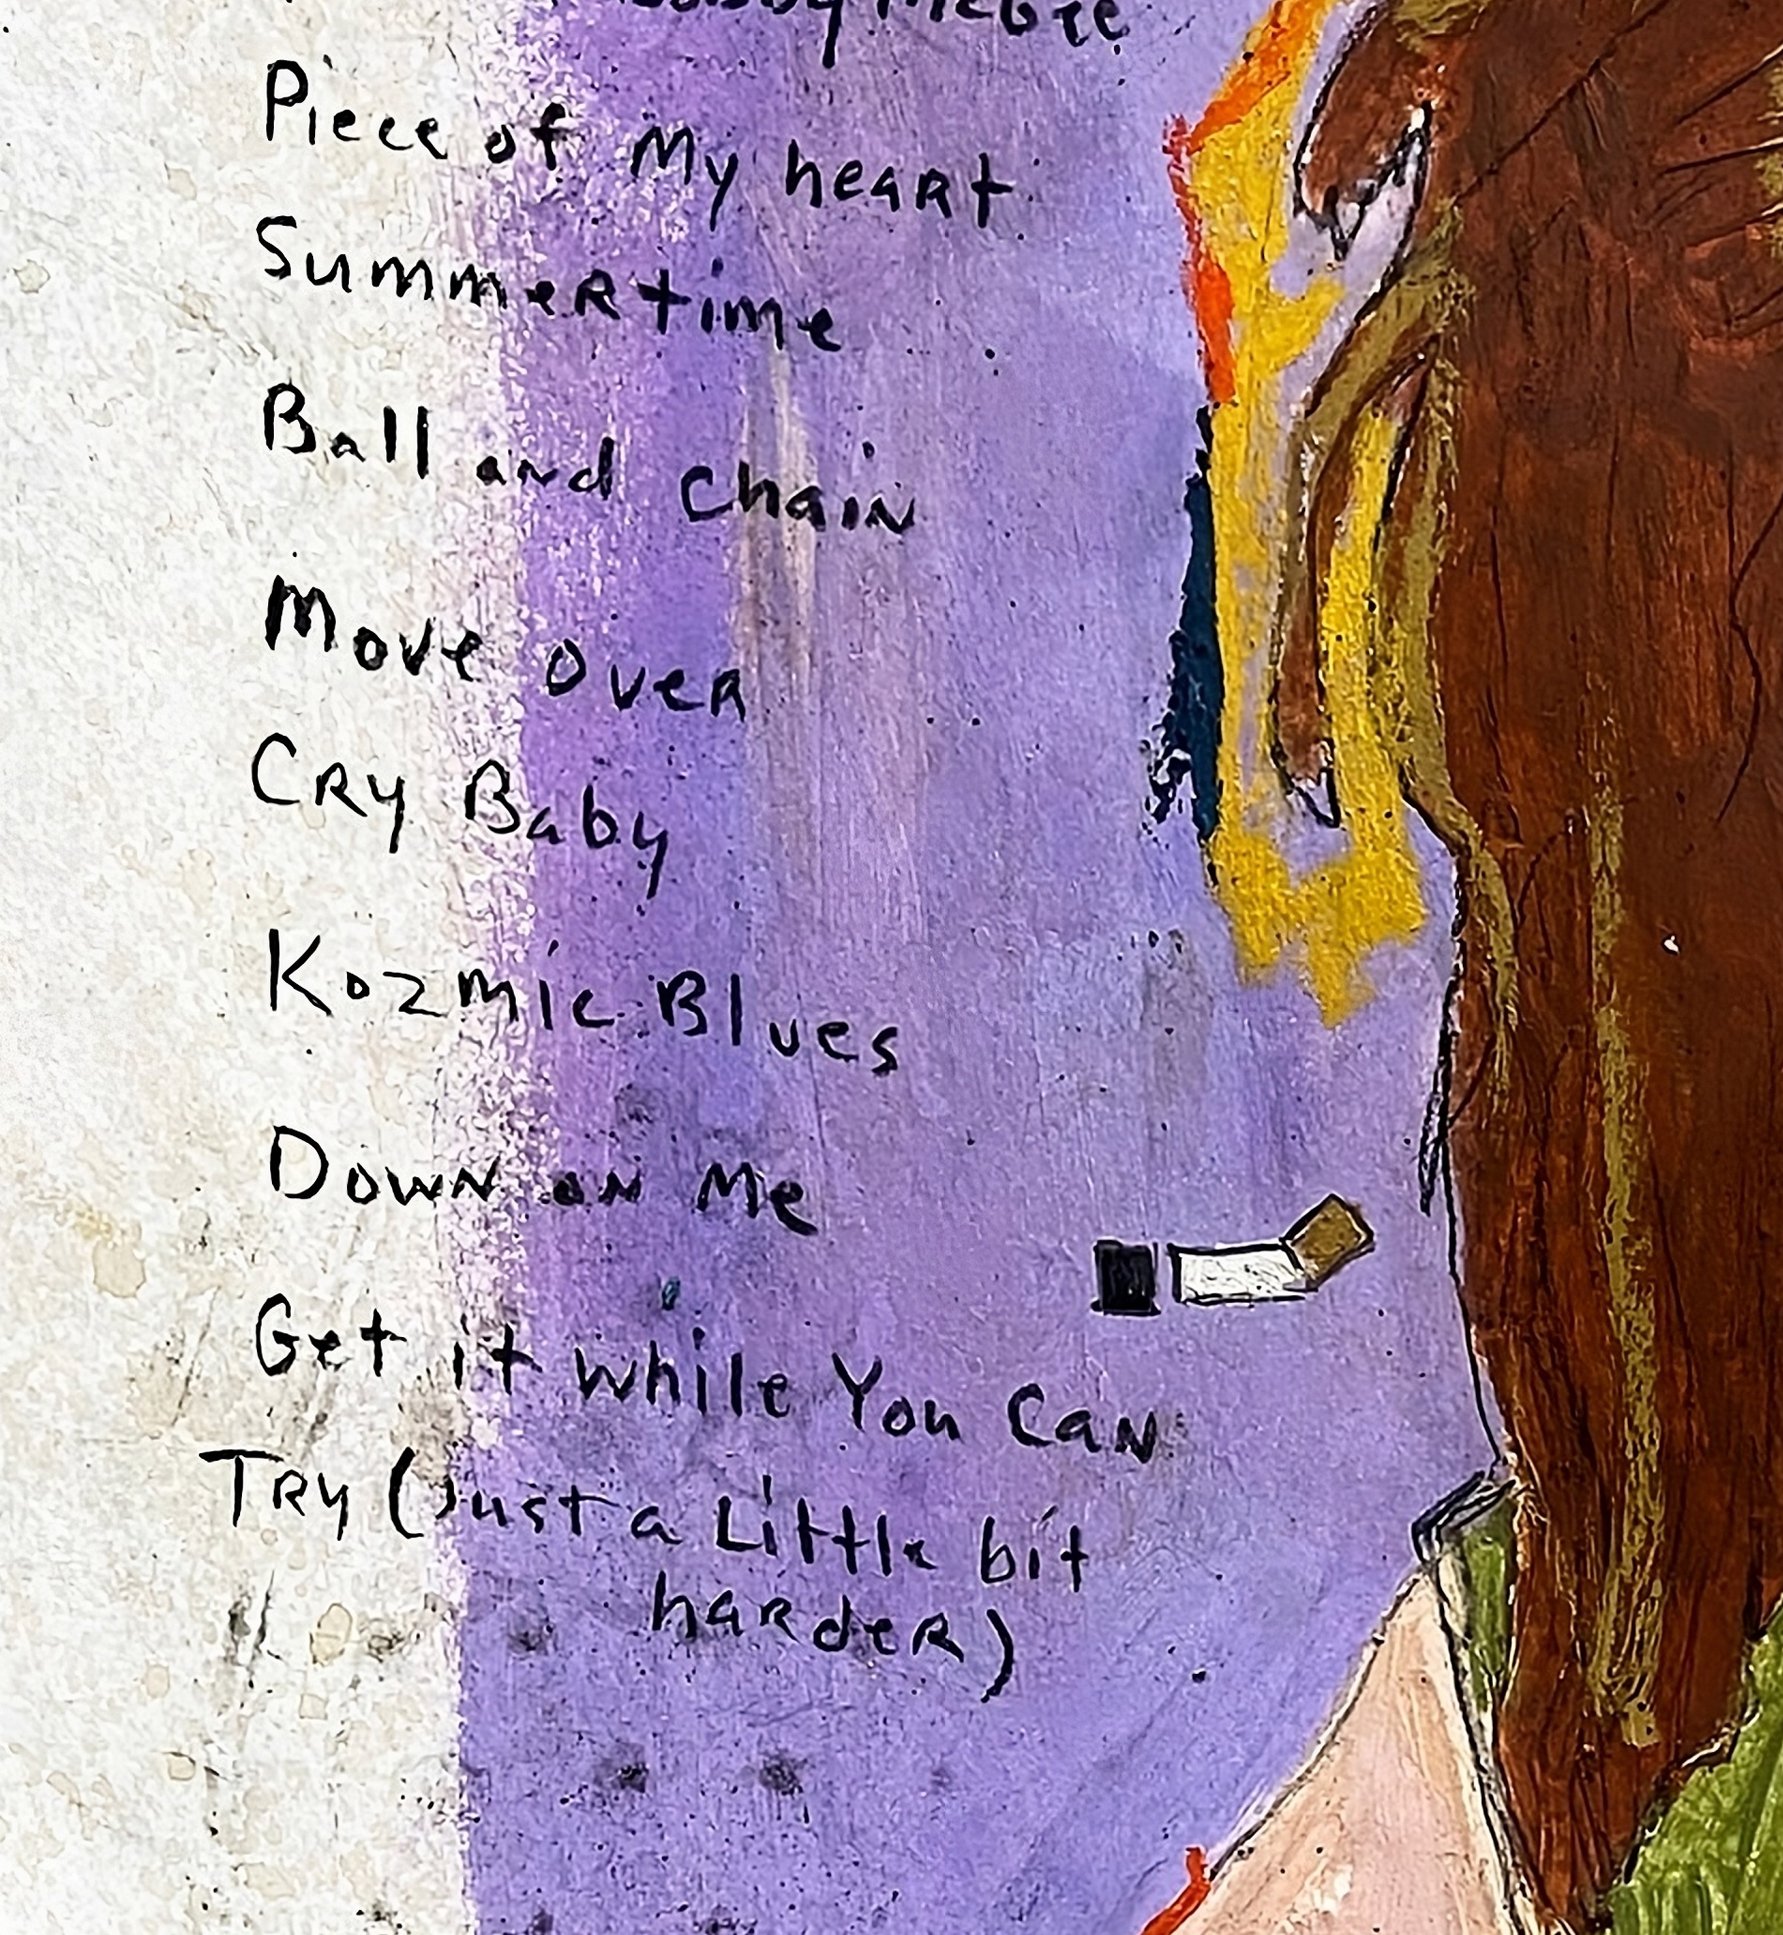 Bobby McGee
Piece of My heart
Summertime
Ball and Chain
Move over
Cry Baby
Kozmic Blues
Down on Me
Get it while You Can
Try (Just a Little bit
harder)